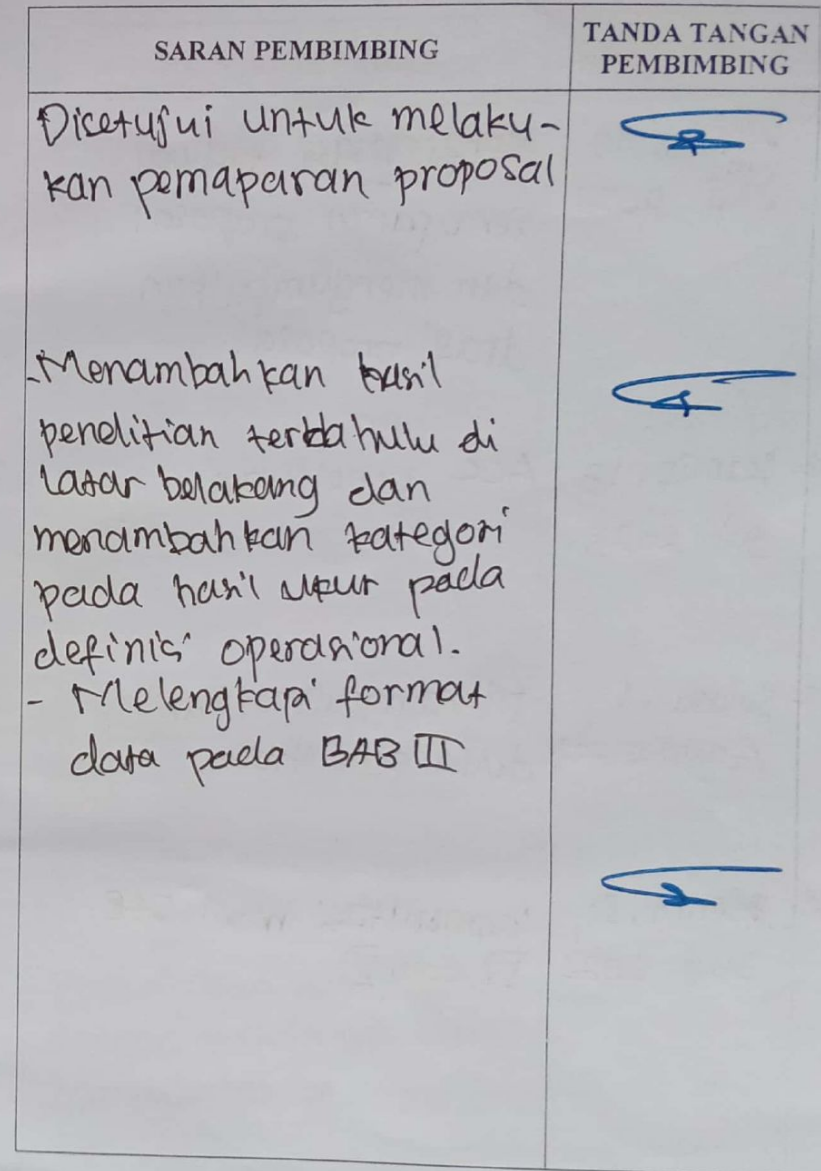 SARAN PEMBIMBING
TANDA TANGAN
PEMBIMBING
Disetujui untuk melaku-
kan pemaparan proposal
-Menambahkan hasil
penelitian terdahulu di
latar belakang dan
menambahkan kategori
pada hasil ukur pada
definisi operasional.
- Melengkapi format
data pada BAB III